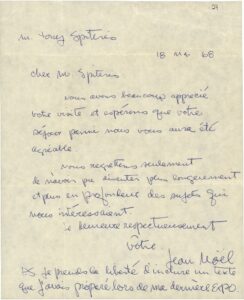 21
M. Tony Spiteris
18 Mai 68
cher M. Spiteris
nous avons beaucoup apprécié
votre visite et espérons que votre
séjour parmi nous vous aura été
agréable
nous regrettons seulement
de n'avoir pu discuter plus longuement
et plus en profondeur des sujets qui
nous intéressaient
je demeure respectueusement
vôtre
Jean Noël
PS je prends la liberté d'inclure un texte
que j'avais préparé lors de ma dernière EXPO